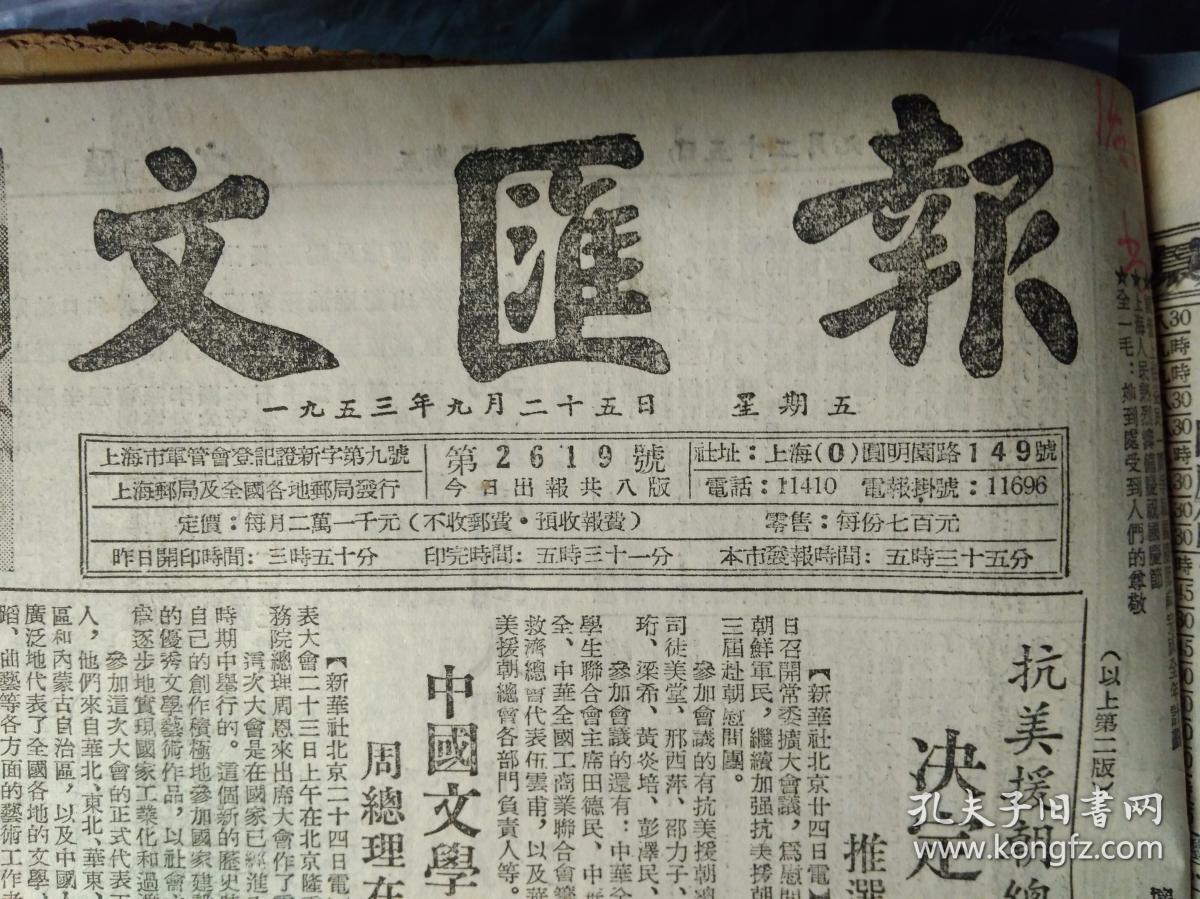 文匯報
一九五三年九月二十五日 星期五
上海市軍管會登記證新字第九號
上海郵局及全國各地郵局發行
第2619號
今日出報共八版
社址：上海(0)圓明園路149號
電話：11410 電報掛號：11696
定價：每月二萬一千元（不收郵費・預收報費） 零售：每份七百元
昨日開印時間：三時五十分 印完時間：五時三十一分 本市發報時間：五時三十五分
全一毛：她到處受到人們的尊敬
（以上第二版）
抗美援朝總
决定
推選
【新華社北京廿四日電】
日召開常委擴大會議，爲慰問
朝鮮軍民，繼續加强抗美援朝
三屆赴朝慰問團。
參加會議的有抗美援朝總
司徒美堂、邢西萍、邵力子、
珩、梁希、黃炎培、彭澤民、
參加會議的還有：中華全
學生聯合會主席田德民、中
全、中華全國工商業聯合會籌
救濟總會代表伍雲甫，以及華
美援朝總會各部門負責人等。
中國文學
周總理在
【新華社北京二十四日電
表大會二十三日上午在北京隆
務院總理周恩來出席大會作了
這次大會是在國家已經進
時期中舉行的。這個新的歷史
自己的創作積極地參加國家建
的優秀文學藝術作品，以社會
當逐步地實現國家工業化和過
參加這次大會的正式代表
人，他們來自華北、東北、華東、
區和內蒙古自治區，以及中國人
廣泛地代表了全國各地的文學、
蹈、曲藝等各方面的藝術工作者
孔夫子旧書网